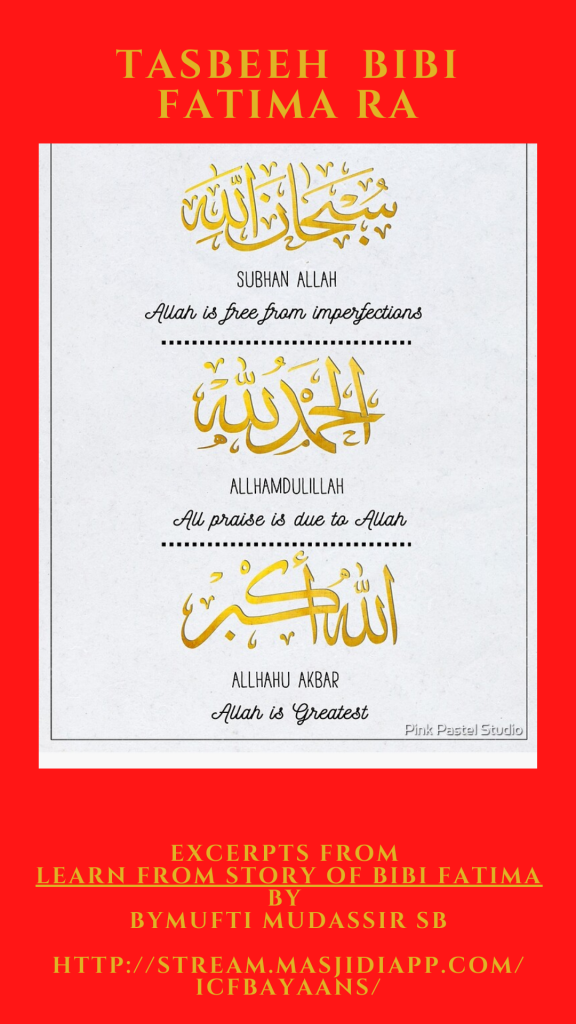 TASBEEH BIBI
FATIMA RA
سُبْحَانَ اللّٰه
SUBHAN ALLAH
Allah is free from imperfections
الحَمْدُ لِلّٰه
ALLHAMDULILLAH
All praise is due to Allah
اللّٰهُ أَكْبَر
ALLHAHU AKBAR
Allah is Greatest
Pink Pastel Studio
EXCERPTS FROM
LEARN FROM STORY OF BIBI FATIMA
BY
BYMUFTI MUDASSIR SB
HTTP://STREAM.MASJIDIAPP.COM/
ICFBAYAANS/